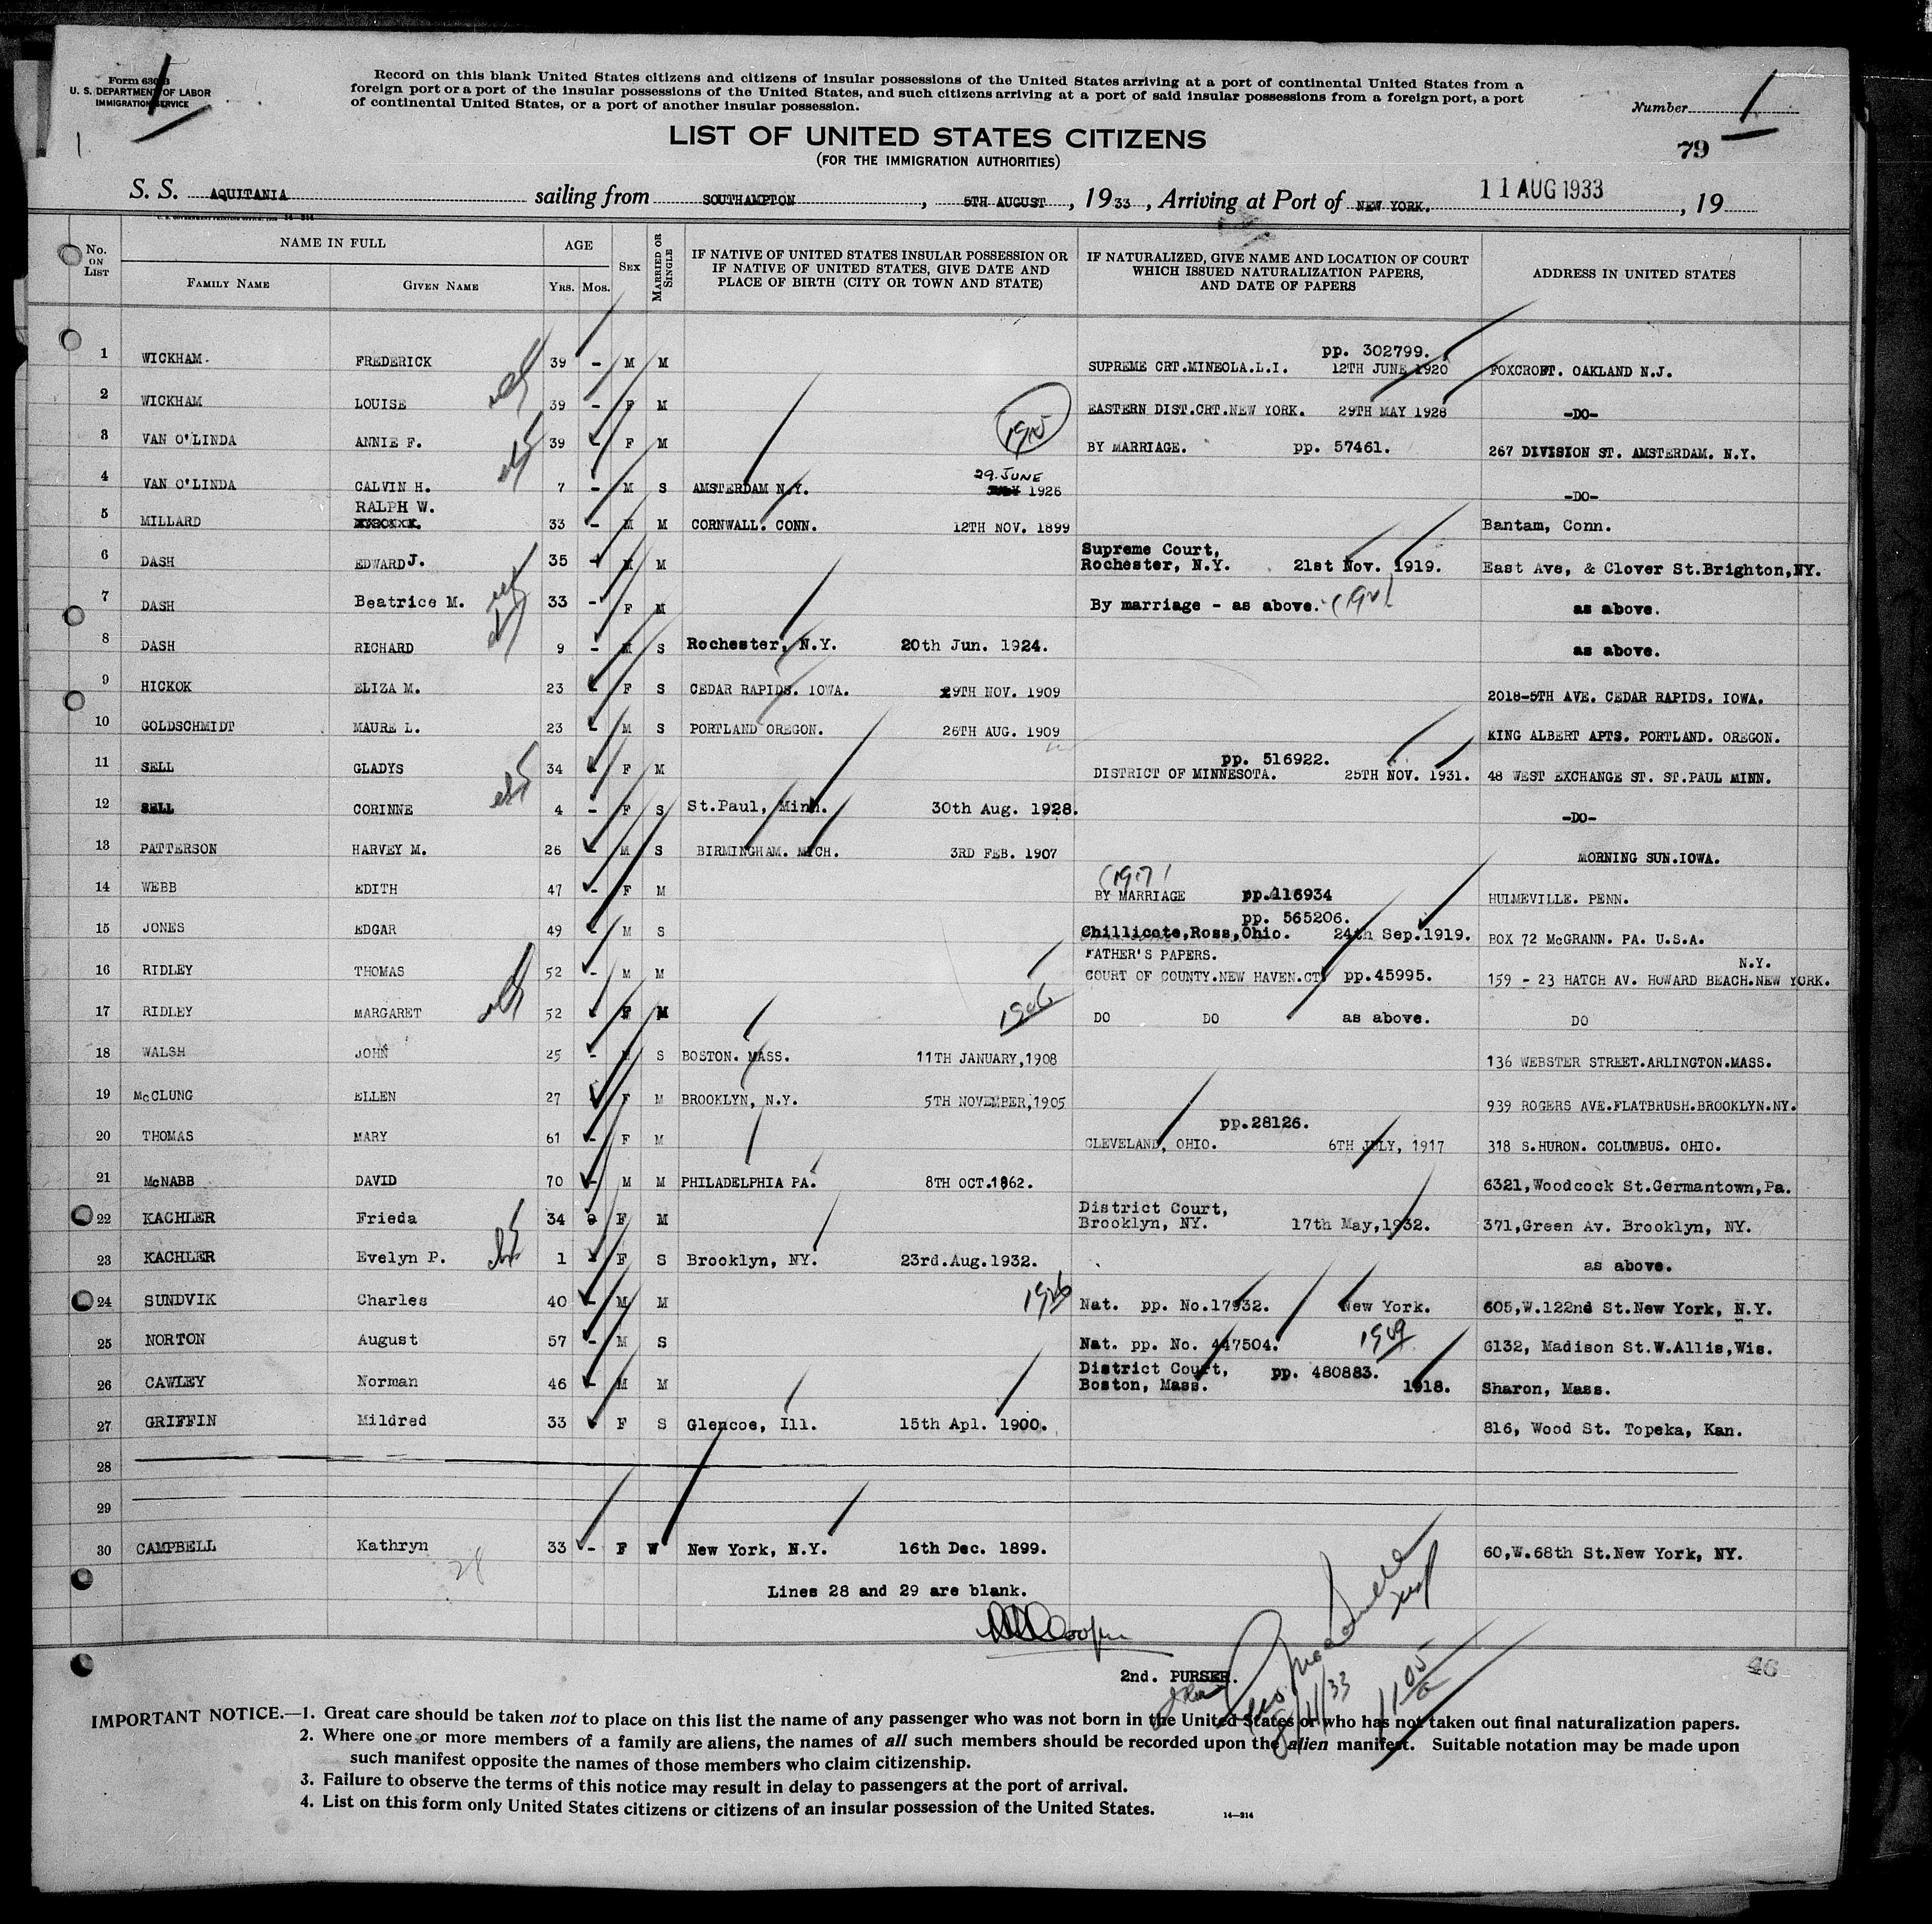 Form 630 B
U. S. DEPARTMENT OF LABOR
IMMIGRATION SERVICE
1
Record on this blank United States citizens and citizens of insular possessions of the United States arriving at a port of continental United States from a
foreign port or a port of the insular possessions of the United States, and such citizens arriving at a port of said insular possessions from a foreign port, a port
of continental United States, or a port of another insular possession.
Number 1
LIST OF UNITED STATES CITIZENS
(FOR THE IMMIGRATION AUTHORITIES)
79
S. S. AQUITANIA sailing from SOUTHAMPTON, 5TH AUGUST, 1933, Arriving at Port of NEW YORK. 11 AUG 1933, 19
No. ON LIST NAME IN FULL FAMILY NAME GIVEN NAME AGE YRS. MOS. SEX MARRIED OR SINGLE IF NATIVE OF UNITED STATES INSULAR POSSESSION OR IF NATIVE OF UNITED STATES, GIVE DATE AND PLACE OF BIRTH (CITY OR TOWN AND STATE) IF NATURALIZED, GIVE NAME AND LOCATION OF COURT WHICH ISSUED NATURALIZATION PAPERS, AND DATE OF PAPERS ADDRESS IN UNITED STATES
pp. 302799.
1 WICKHAM. FREDERICK 39 - M M SUPREME CRT.MINEOLA.L.I. 12TH JUNE 1920 FOXCROFT. OAKLAND N.J.
2 WICKHAM LOUISE 39 - F M EASTERN DIST.CRT.NEW YORK. 29TH MAY 1928 -DO-
3 VAN O'LINDA ANNIE F. 39 - F M 1915 BY MARRIAGE. pp. 57461. 267 DIVISION ST. AMSTERDAM. N.Y.
29.JUNE
4 VAN O'LINDA CALVIN H. 7 - M S AMSTERDAM N.Y. 1926 -DO-
RALPH W.
5 MILLARD 33 - M M CORNWALL. CONN. 12TH NOV. 1899 Bantam, Conn.
Supreme Court,
6 DASH EDWARD J. 35 - M M Rochester, N.Y. 21st Nov. 1919. East Ave, & Clover St.Brighton,NY.
7 DASH Beatrice M. 33 - F M By marriage - as above. as above.
8 DASH RICHARD 9 - M S Rochester, N.Y. 20th Jun. 1924. as above.
9 HICKOK ELIZA M. 23 - F S CEDAR RAPIDS. IOWA. 29TH NOV. 1909 2018-5TH AVE. CEDAR RAPIDS. IOWA.
10 GOLDSCHMIDT MAURE L. 23 - M S PORTLAND OREGON. 26TH AUG. 1909 KING ALBERT APTS. PORTLAND. OREGON.
pp. 516922.
11 SELL GLADYS 34 - F M DISTRICT OF MINNESOTA. 25TH NOV. 1931. 48 WEST EXCHANGE ST. ST.PAUL MINN.
12 SELL CORINNE 4 - F S St.Paul, Minn. 30th Aug. 1928. -DO-
13 PATTERSON HARVEY M. 26 - M S BIRMINGHAM. MICH. 3RD FEB. 1907 MORNING SUN.IOWA.
(1917)
14 WEBB EDITH 47 - F M BY MARRIAGE pp.116934 HULMEVILLE. PENN.
pp. 565206.
15 JONES EDGAR 49 - M S Chillicote,Ross,Ohio. 24th Sep.1919. BOX 72 McGRANN. PA. U.S.A.
FATHER'S PAPERS. N.Y.
16 RIDLEY THOMAS 52 - M M COURT OF COUNTY.NEW HAVEN.CT. pp.45995. 159 - 23 HATCH AV. HOWARD BEACH.NEW YORK.
17 RIDLEY MARGARET 52 - F M 1906 DO DO as above. DO
18 WALSH JOHN 25 - M S BOSTON. MASS. 11TH JANUARY,1908 136 WEBSTER STREET.ARLINGTON.MASS.
19 McCLUNG ELLEN 27 - F M BROOKLYN, N.Y. 5TH NOVEMBER,1905 939 ROGERS AVE.FLATBRUSH.BROOKLYN.NY.
pp.28126.
20 THOMAS MARY 61 - F M CLEVELAND, OHIO. 6TH JULY, 1917 318 S.HURON. COLUMBUS. OHIO.
21 McNABB DAVID 70 - M M PHILADELPHIA PA. 8TH OCT.1862. 6321,Woodcock St.Germantown,Pa.
District Court,
22 KACHLER Frieda 34 9 F M Brooklyn, NY. 17th May,1932. 371,Green Av. Brooklyn, NY.
23 KACHLER Evelyn P. 1 - F S Brooklyn, NY. 23rd.Aug.1932. as above.
24 SUNDVIK Charles 40 - M M 1926 Nat. pp. No.17932. New York. 605,W.122nd St.New York, N.Y.
25 NORTON August 57 - M S Nat. pp. No. 447504. 1909 6132, Madison St.W.Allis,Wis.
District Court, pp. 480883.
26 CAWLEY Norman 46 - M M Boston, Mass. 1918. Sharon, Mass.
27 GRIFFIN Mildred 33 - F S Glencoe, Ill. 15th Apl. 1900. 816, Wood St. Topeka, Kan.
28
29
30 CAMPBELL Kathryn 33 - F W New York, N.Y. 16th Dec. 1899. 60,W.68th St.New York, NY.
28
Lines 28 and 29 are blank.
2nd. PURSER.
8/11/33
46
IMPORTANT NOTICE.—1. Great care should be taken not to place on this list the name of any passenger who was not born in the United States or who has not taken out final naturalization papers.
2. Where one or more members of a family are aliens, the names of all such members should be recorded upon the alien manifest. Suitable notation may be made upon
such manifest opposite the names of those members who claim citizenship.
3. Failure to observe the terms of this notice may result in delay to passengers at the port of arrival.
4. List on this form only United States citizens or citizens of an insular possession of the United States.
14—214